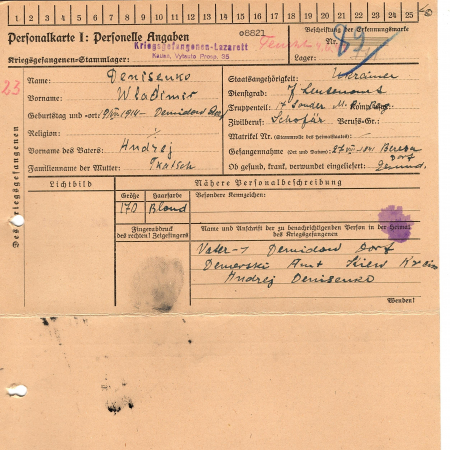 1 2 3 4 5 6 7 8 9 10 11 12 13 14 15 16 17 18 19 20 21 22 23 24 25
Personalkarte I: Personelle Angaben
Kriegsgefangenen-Stammlager:
Kriegsgefangenen-Lazarett
Kauen, Vytauto Prosp. 35
o8821
Beschriftung der Erkennungsmarke
Nr.
89
Lager:
23
Des Kriegsgefangenen
Name: Denisenko
Vorname: Wladimir
Geburtstag und -ort: 1914 - Demidow Dorf
Religion: /
Vorname des Vaters: Andrej
Familienname der Mutter: Tkatsch
Staatsangehörigkeit: Ukrainer
Dienstgrad: Leutenant
Truppenteil: 17 Komp. usw.
Zivilberuf: Schofär Berufs-Gr.:
Matrikel Nr. (Stammrolle des Heimatstaates):
Gefangennahme (Ort und Datum): Dorf
Ob gesund, krank, verwundet eingeliefert: Gesund.
Lichtbild
Nähere Personalbeschreibung
Größe Haarfarbe
170 Blond
Besondere Kennzeichen:
Fingerabdruck
des rechten! Zeigefingers
Name und Anschrift der zu benachrichtigenden Person in der Heimat
des Kriegsgefangenen
Vater - Demidow Dorf
Demerski Amt Kiew
Andrej Denisenko
Wenden!